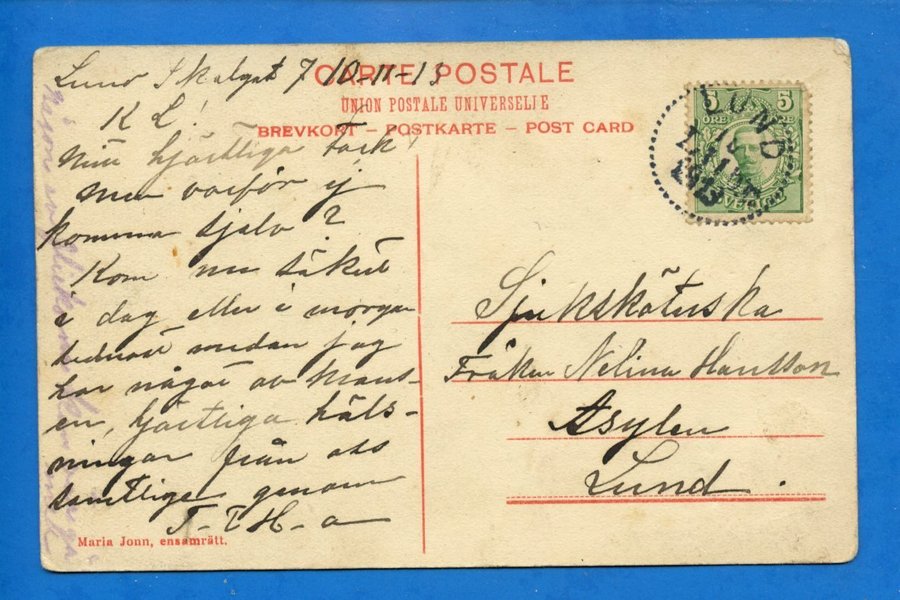 CARTE POSTALE
UNION POSTALE UNIVERSELLE
BREVKORT – POSTKARTE – POST CARD
Lund 7 10-11-13
K L!
Min hjärtliga Tack!
men varför ej
komma själv?
Kom nu säkert
i dag eller i morgon
medan jag
har något av
en, hjärtliga häls-
ningar från oss
samtliga genom
T-T H-a
Maria Jonn, ensamrätt.
5 5
ÖRE ÖRE
SVERIGE
LUND
1913
Sjuksköterska
Fröken Nelina Hansson
Asylen
Lund.